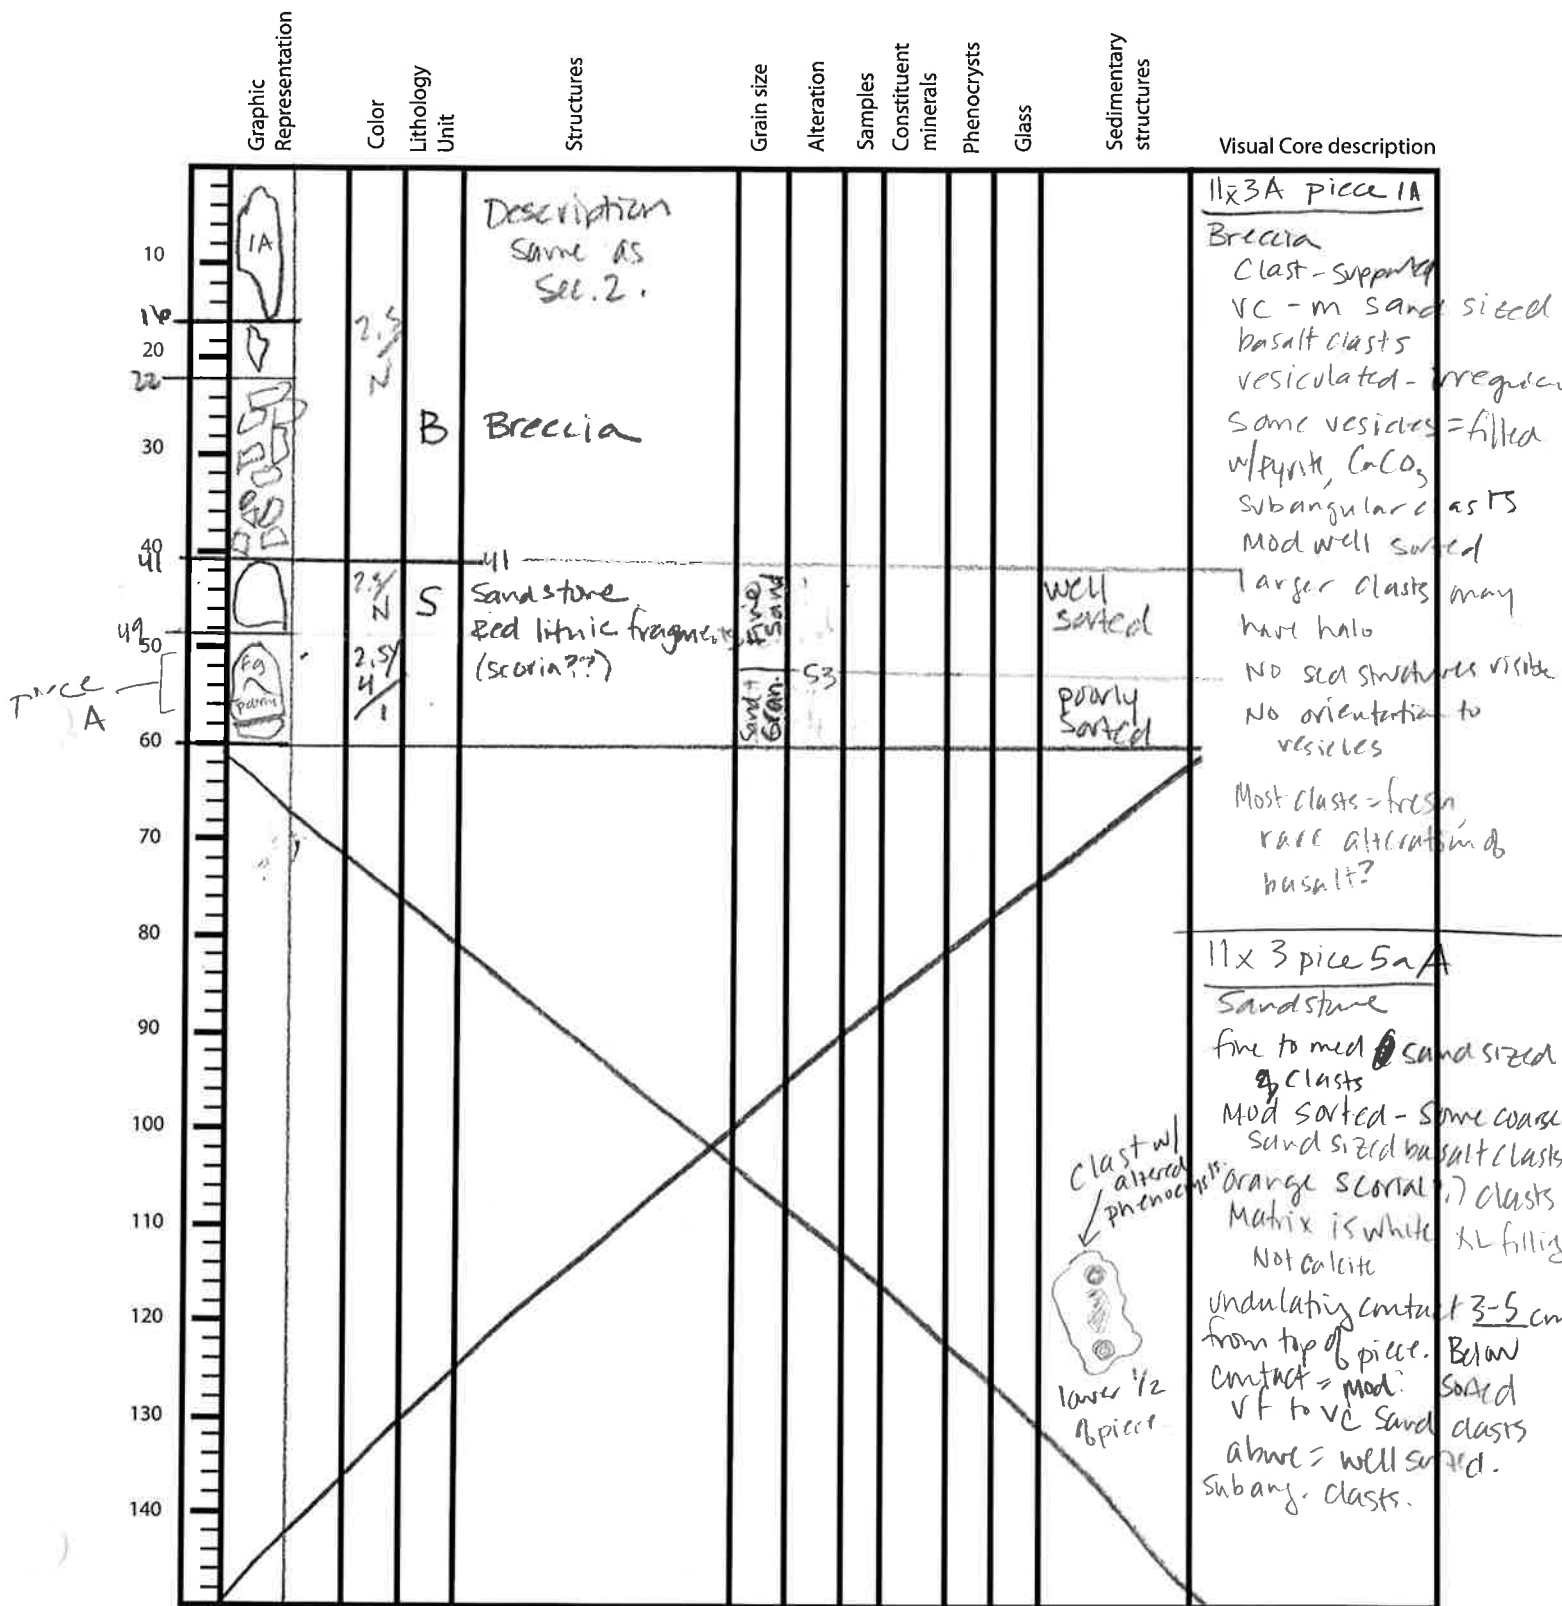 Graphic
Representation
Color
Lithology
Unit
Structures
Grain size
Alteration
Samples
Constituent
minerals
Phenocrysts
Glass
Sedimentary
structures
Visual Core description
10
16
20
22
30
40
41
49
50
60
70
80
90
100
110
120
130
140
A
1A
Fg
2.5/
N
B
2.5/
N
S
2.5Y
4
/1
Description
same as
Sec. 2.
Breccia
41
Sandstone
Red lithic fragments
(scoria??)
Fine
Sand
Sand +
Gran.
53
well
sorted
poorly
sorted
Clast w/
altered
phenocrysts
lower 1/2
of piece
11x3A piece 1A
Breccia
Clast-supported
vc - m sand sized
basalt clasts
vesiculated - irregular
Some vesicles = filled
w/pyrite, CaCO3
subangular clasts
Mod well sorted
larger clasts may
have halo
No sed structures visible
No orientation to
vesicles
Most clasts = fresh,
rare alteration of
basalt?
11x3 pice 5a A
Sandstone
fine to med sand sized
clasts
Mod sorted - some coarse
sand sized basalt clasts
orange scoria(?) clasts
Matrix is white XL filling
Not calcite
undulating contact 3-5 cm
from top of piece. Below
contact = mod. sorted
vf to vc sand clasts
above = well sorted.
subang. clasts.